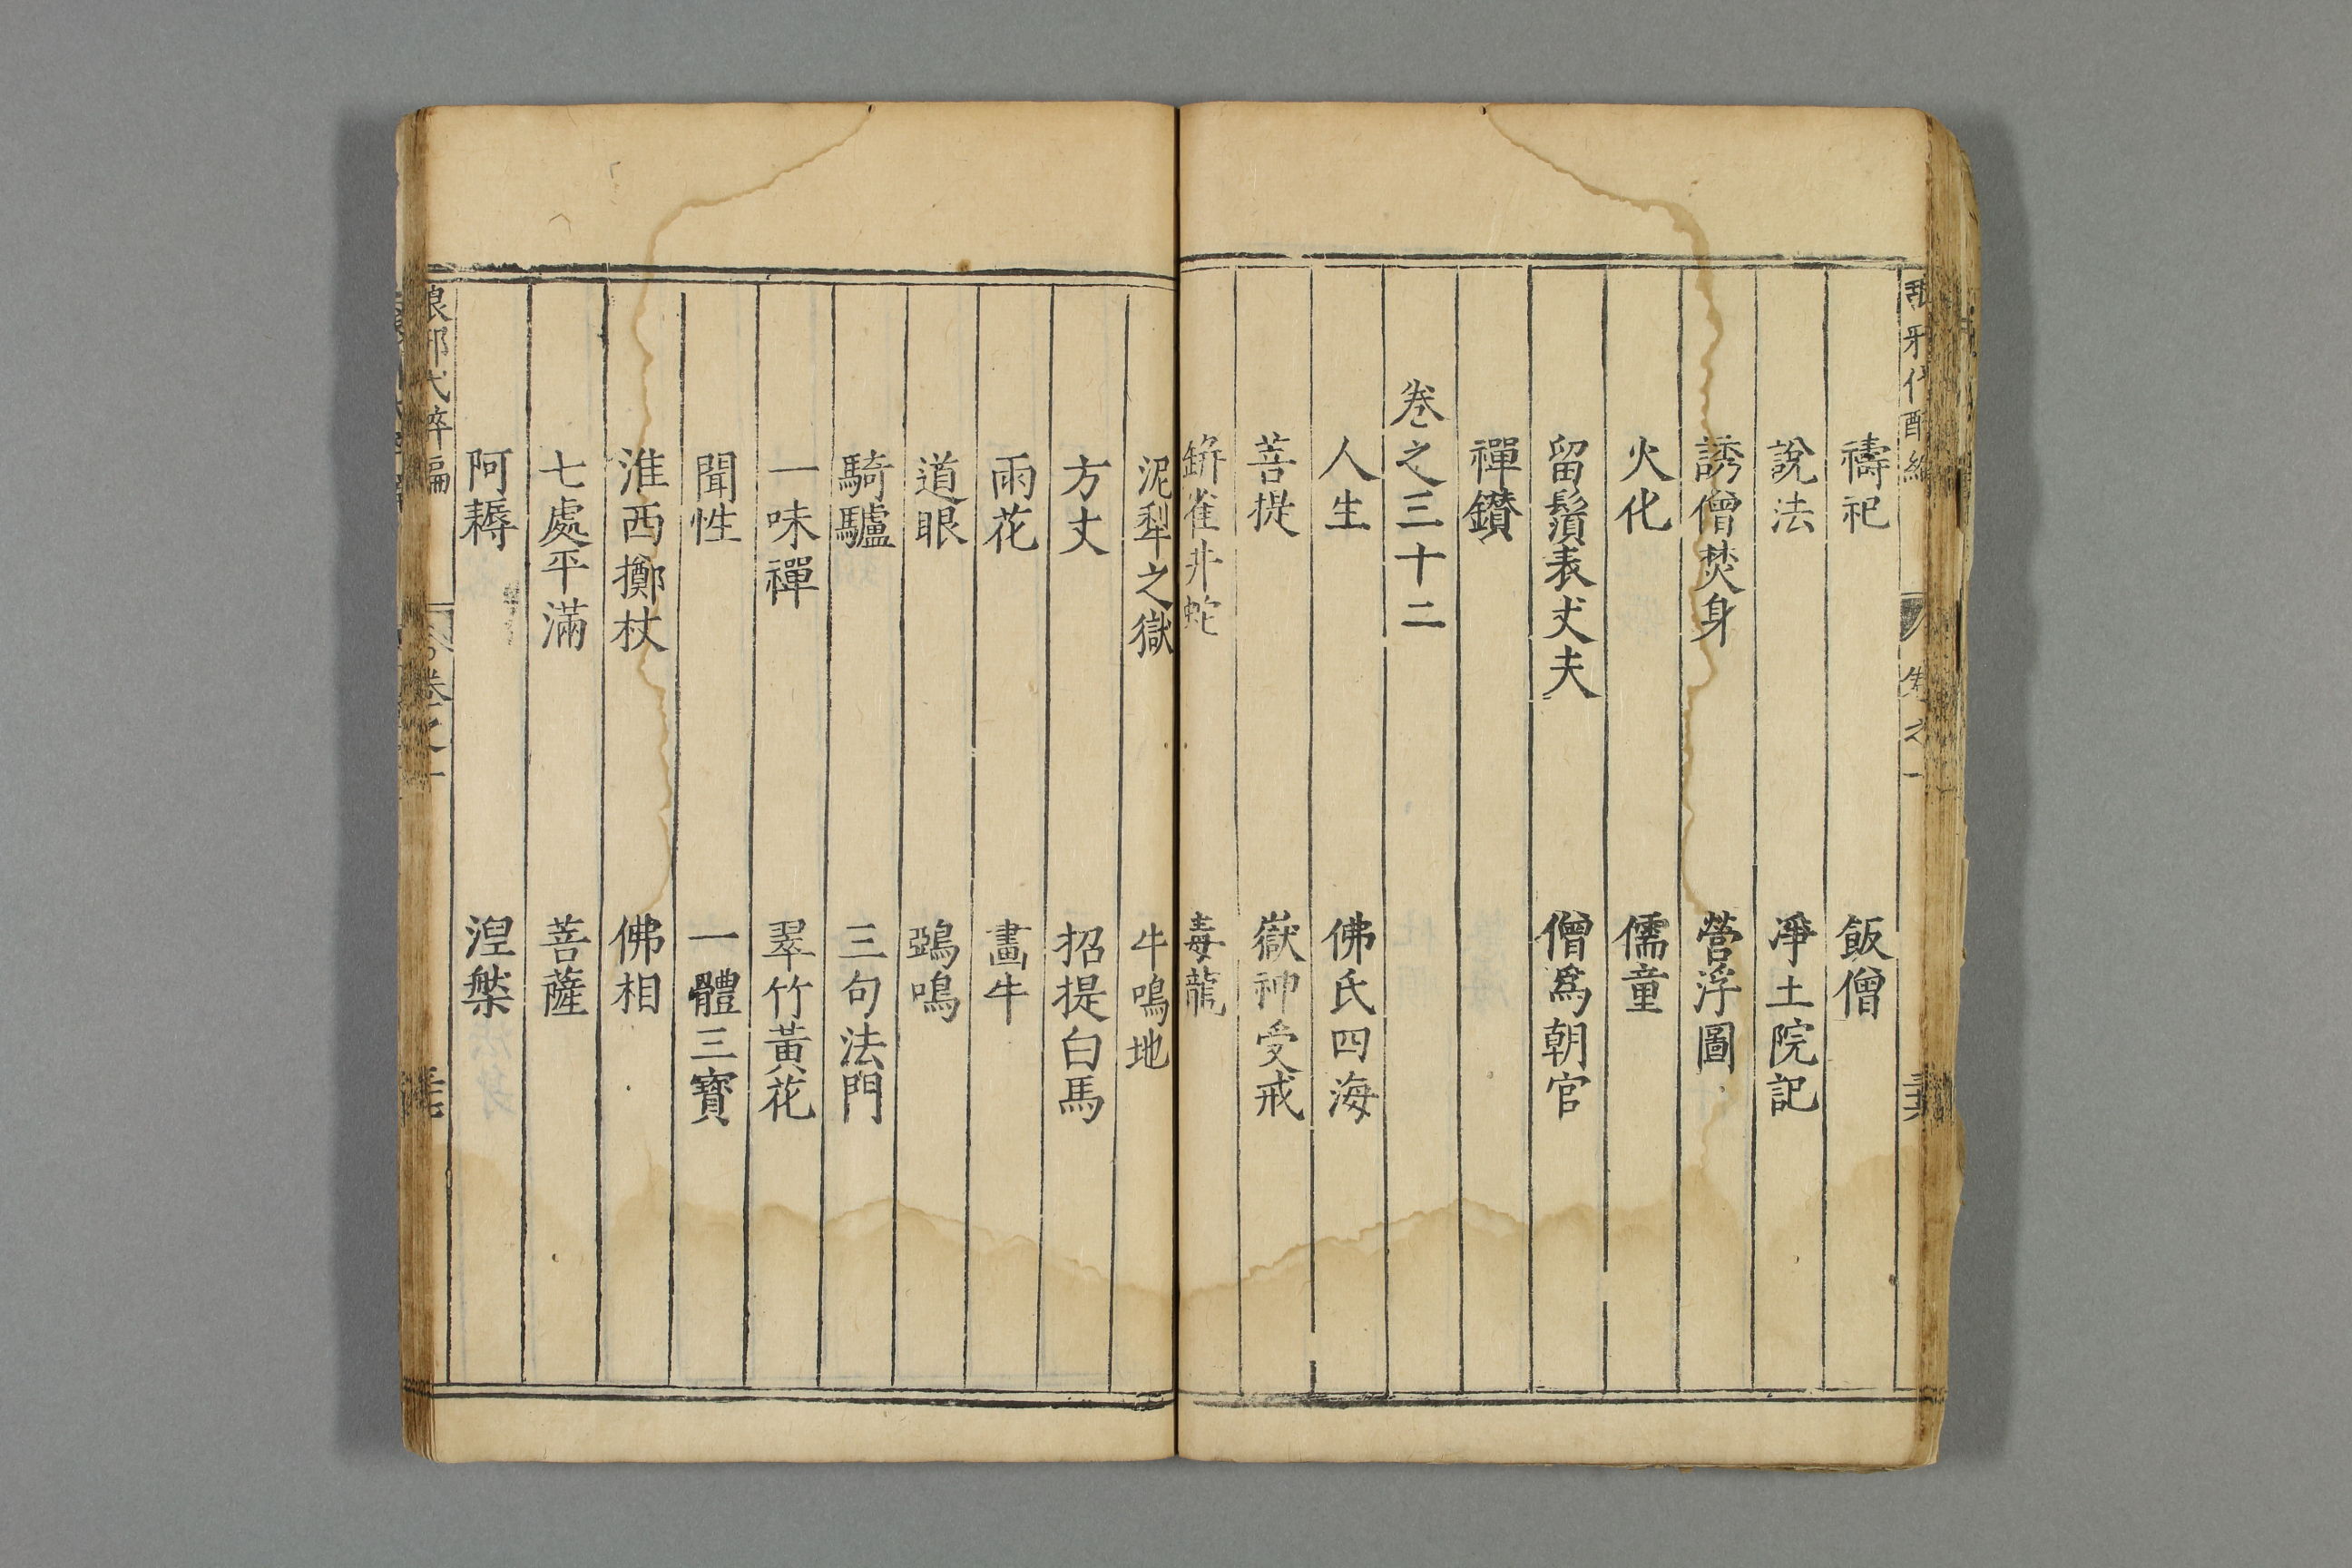 禱祀 飯僧
說法 淨土院記
誘僧焚身 營浮圖
火化 儒童
留鬚表丈夫 僧爲朝官
禪鑽
卷之三十二
人生 佛氏四海
菩提 嶽神受戒
缾雀井蛇 毒龍
泥犁之獄 牛鳴地
方丈 招提白馬
雨花 畫牛
道眼 鵶鳴
騎驢 三句法門
一味禪 翠竹黃花
聞性 一體三寶
淮西擲杖 佛相
七處平滿 菩薩
阿耨 涅槃
琅邪代醉編 卷之一